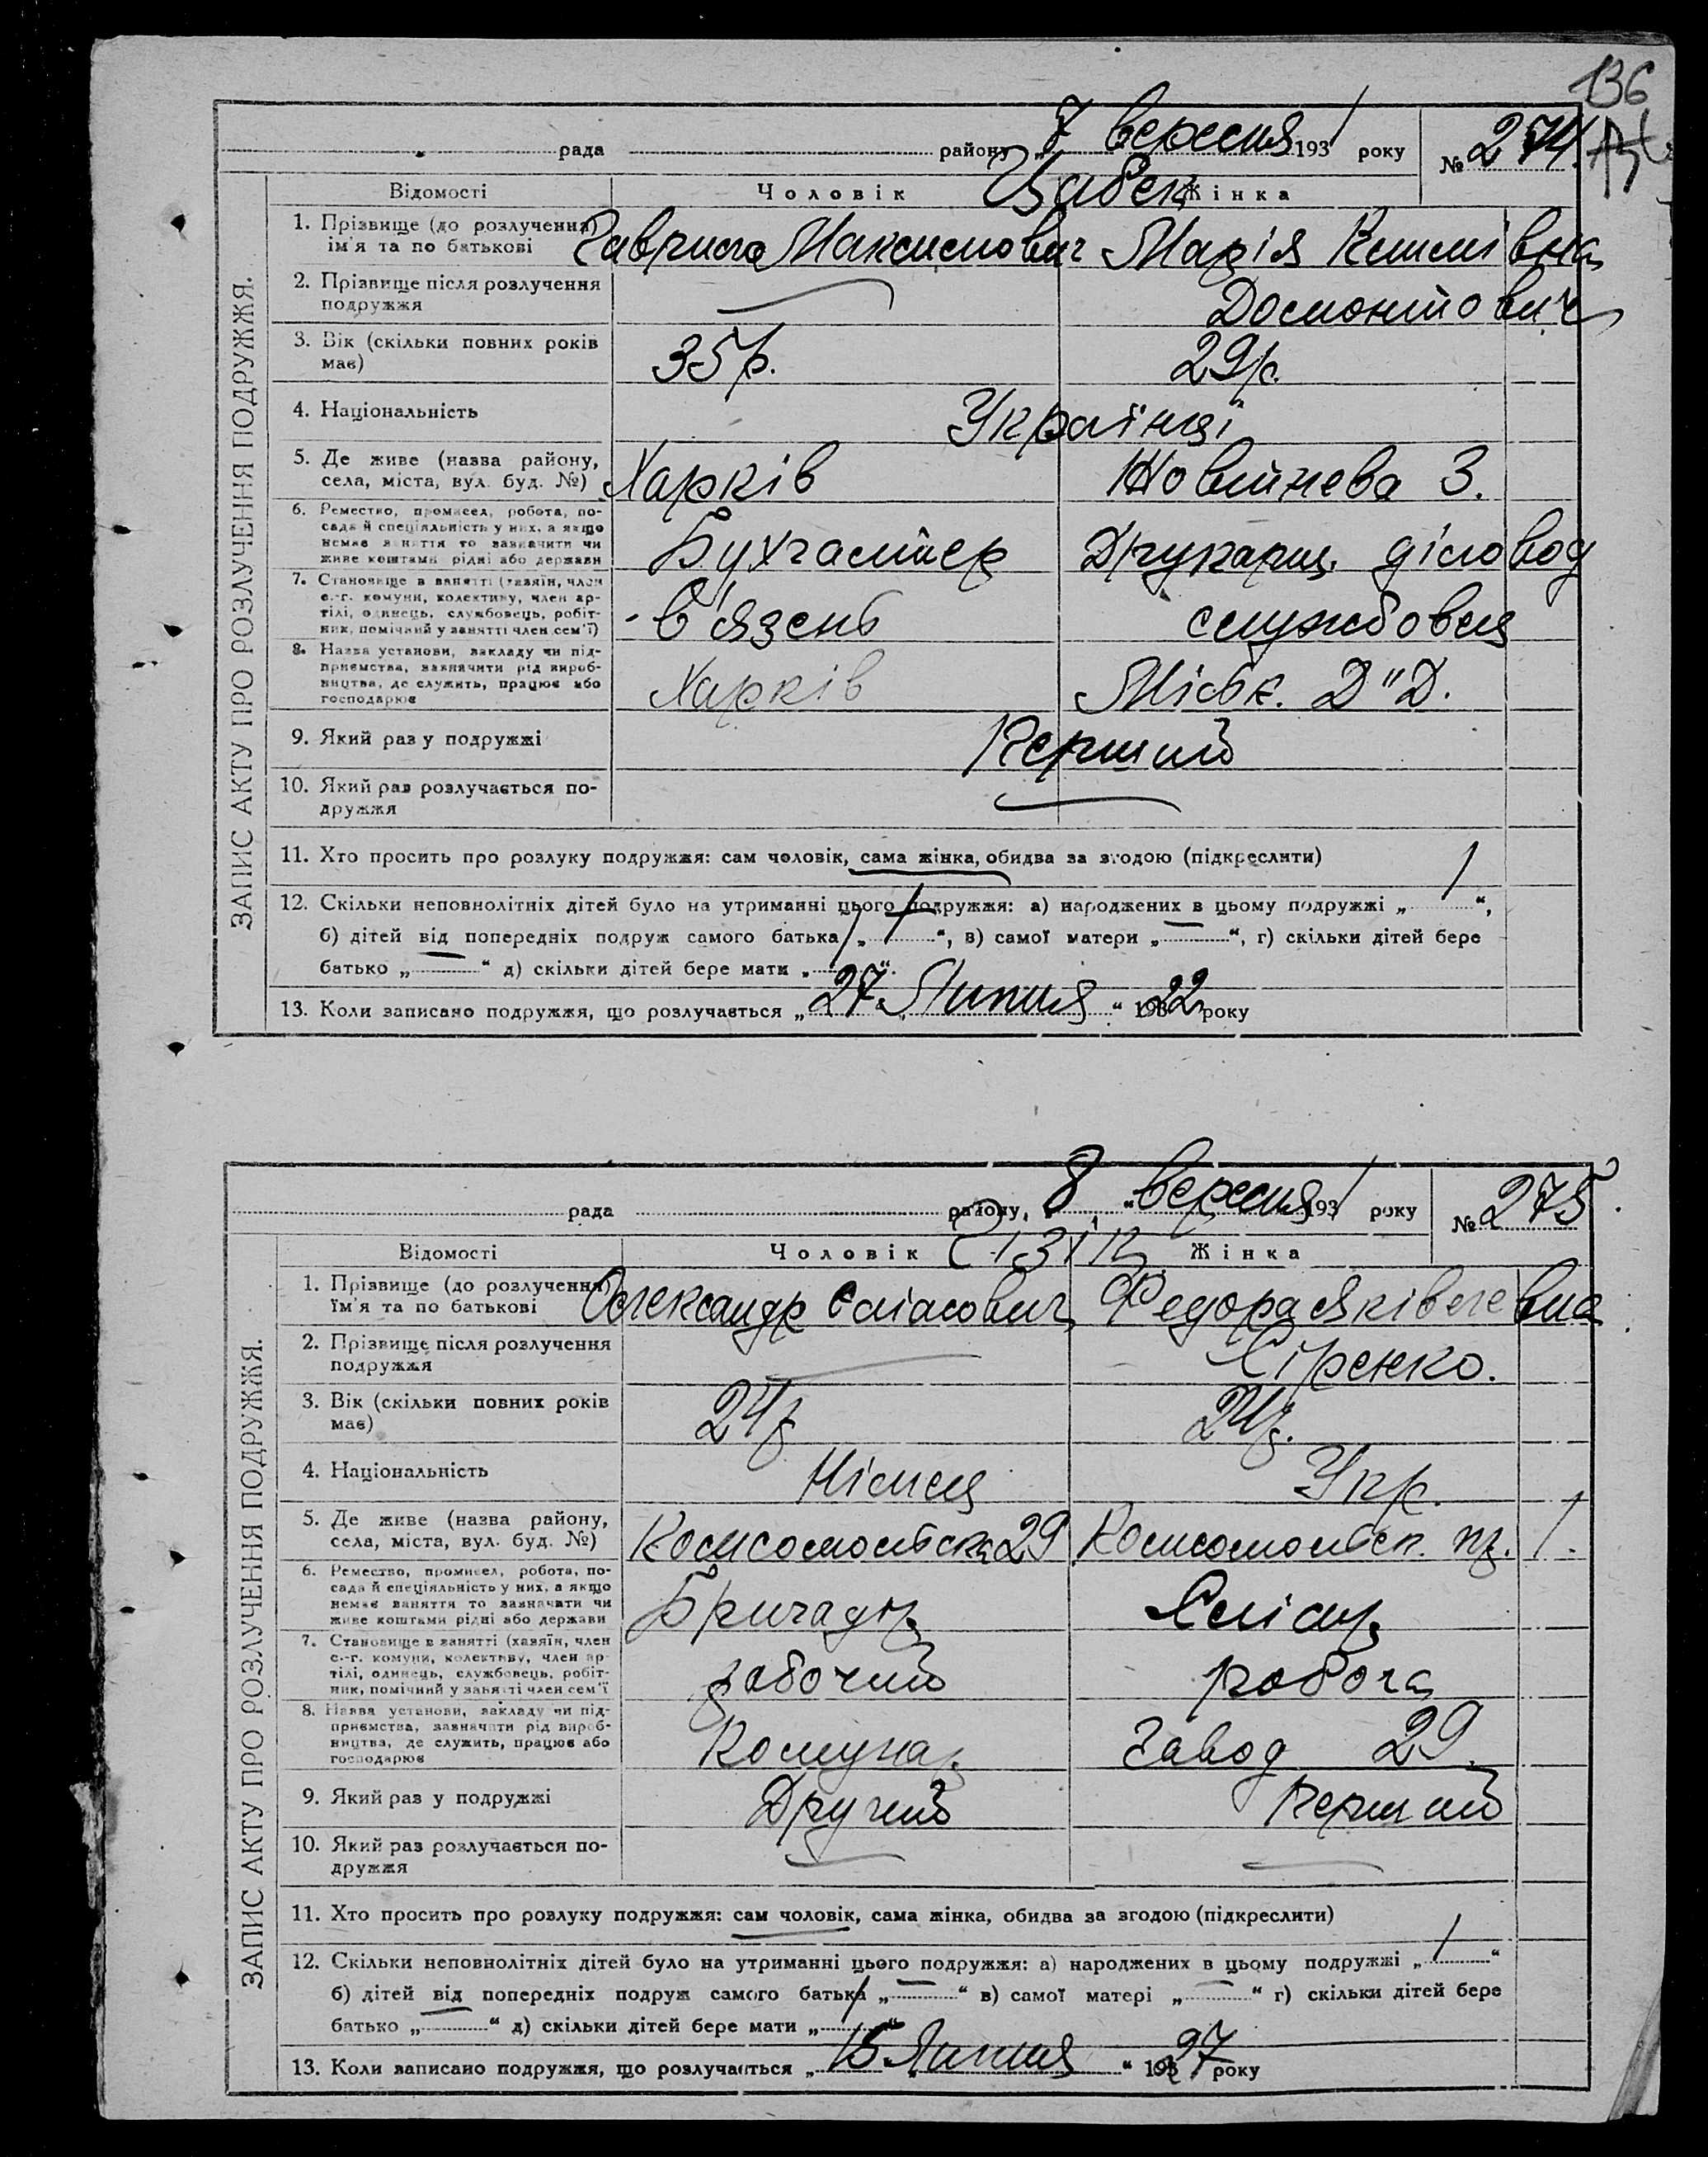 136
рада района „7 вересня 1931 року № 274.
Відомості Чоловік Цабек Жінка
ЗАПИС АКТУ ПРО РОЗЛУЧЕННЯ ПОДРУЖЖЯ.
1. Прізвище (до розлучення) ім'я та по батькові Гаврило Максимович Марія Климівна
2. Прізвище після розлучення подружжя — Домонтович
3. Вік (скільки повних років має) 35 р. 29 р.
4. Національність Українці
5. Де живе (назва району, села, міста, вул. буд. №) Харків 3.
6. Ремество, промисел, робота, по-
сада й спеціяльність у них, а якщо
немає заняття то зазначити чи
живе коштами рідні або держави Бухгалтер Друкарщ. діловод
7. Становище в занятті (хазяїн, член
с.-г. комуни, колективу, член ар-
тілі, одинець, службовець, робіт-
ник, помічний у занятті член сем'ї) - в'язень службовця
8. Назва установи, закладу чи під-
приємства, зазначити рід вироб-
ництва, де служить, працює або
господарює Харків Міськ. Д"Д.
9. Який раз у подружжі Перший
10. Який раз розлучається по-
дружжя —
11. Хто просить про розлуку подружжя: сам чоловік, сама жінка, обидва за згодою (підкреслити)
12. Скільки неповнолітніх дітей було на утриманні цього подружжя: а) народжених в цьому подружжі „ 1 “,
б) дітей від попередніх подруж самого батька „ — “, в) самої матери „ — “, г) скільки дітей бере
батько „ — “ д) скільки дітей бере мати „ 1 “.
13. Коли записано подружжя, що розлучається „ 27 „ Липня “ 1922 року
рада району, „ 8 „ вересня 1931 року № 275.
Відомості Чоловік Жінка
ЗАПИС АКТУ ПРО РОЗЛУЧЕННЯ ПОДРУЖЖЯ.
1. Прізвище (до розлучення) ім'я та по батькові Олександр Федора Яківлевна
2. Прізвище після розлучення подружжя — Сіренко.
3. Вік (скільки повних років має) 24 р. 24 р.
4. Національність Німця Укр.
5. Де живе (назва району, села, міста, вул. буд. №) Комсомольська 29 Комсомольск. пр. 1.
6. Ремество, промисел, робота, по-
сада й спеціяльність у них, а якщо
немає заняття то зазначати чи
живе коштами рідні або держави Бригадир Слісар
7. Становище в занятті (хазяїн, член
с.-г. комуни, колективу, член ар-
тілі, одинець, службовець, робіт-
ник, помічний у занятті член сем'ї рабочий робоча
8. Назва установи, закладу чи під-
приємства, зазначати рід вироб-
ництва, де служить, працює або
господарює Комунар. Завод 29.
9. Який раз у подружжі Другий Перший
10. Який раз розлучається по-
дружжя — —
11. Хто просить про розлуку подружжя: сам чоловік, сама жінка, обидва за згодою (підкреслити)
12. Скільки неповнолітніх дітей було на утриманні цього подружжя: а) народжених в цьому подружжі „ 1 “
б) дітей від попередніх подруж самого батька „ — “ в) самої матері „ — “ г) скільки дітей бере
батько „ — “ д) скільки дітей бере мати „ 1 “
13. Коли записано подружжя, що розлучається „ 15 „ Липня “ 1927 року